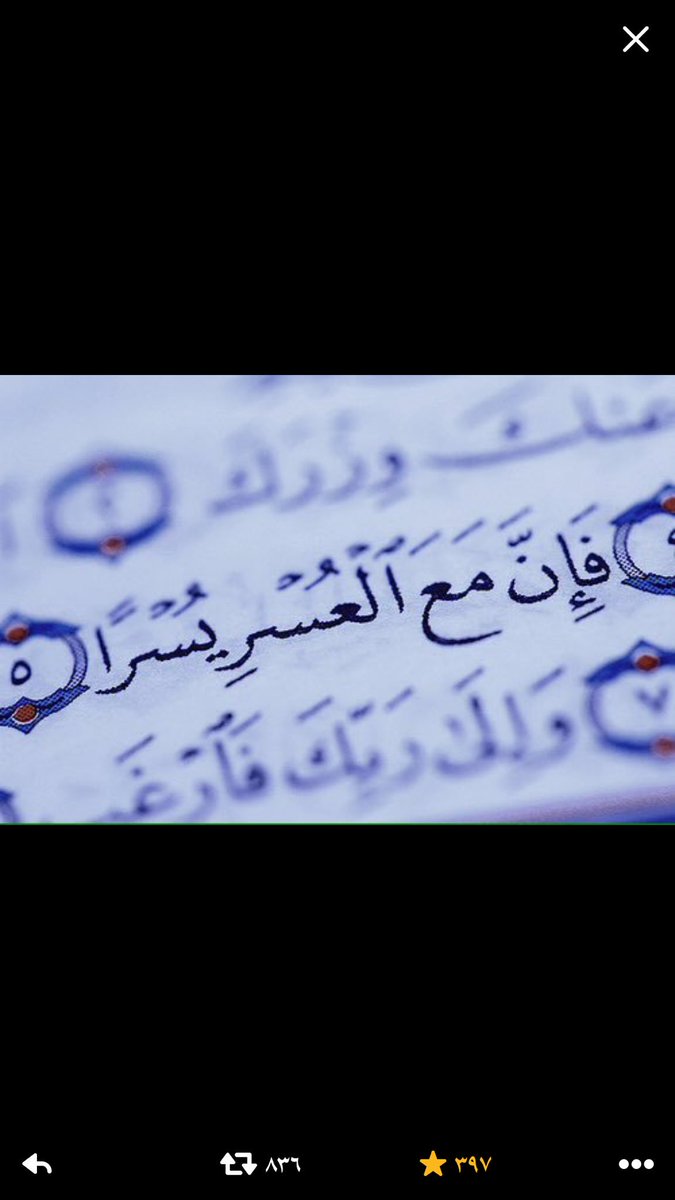 عنك وزرك ٢
فَإِنَّ مَعَ ٱلْعُسْرِ يُسْرًا ٥
٧ وَإِلَىٰ رَبِّكَ فَٱرْغَب
٨٣٦ ٣٩٧